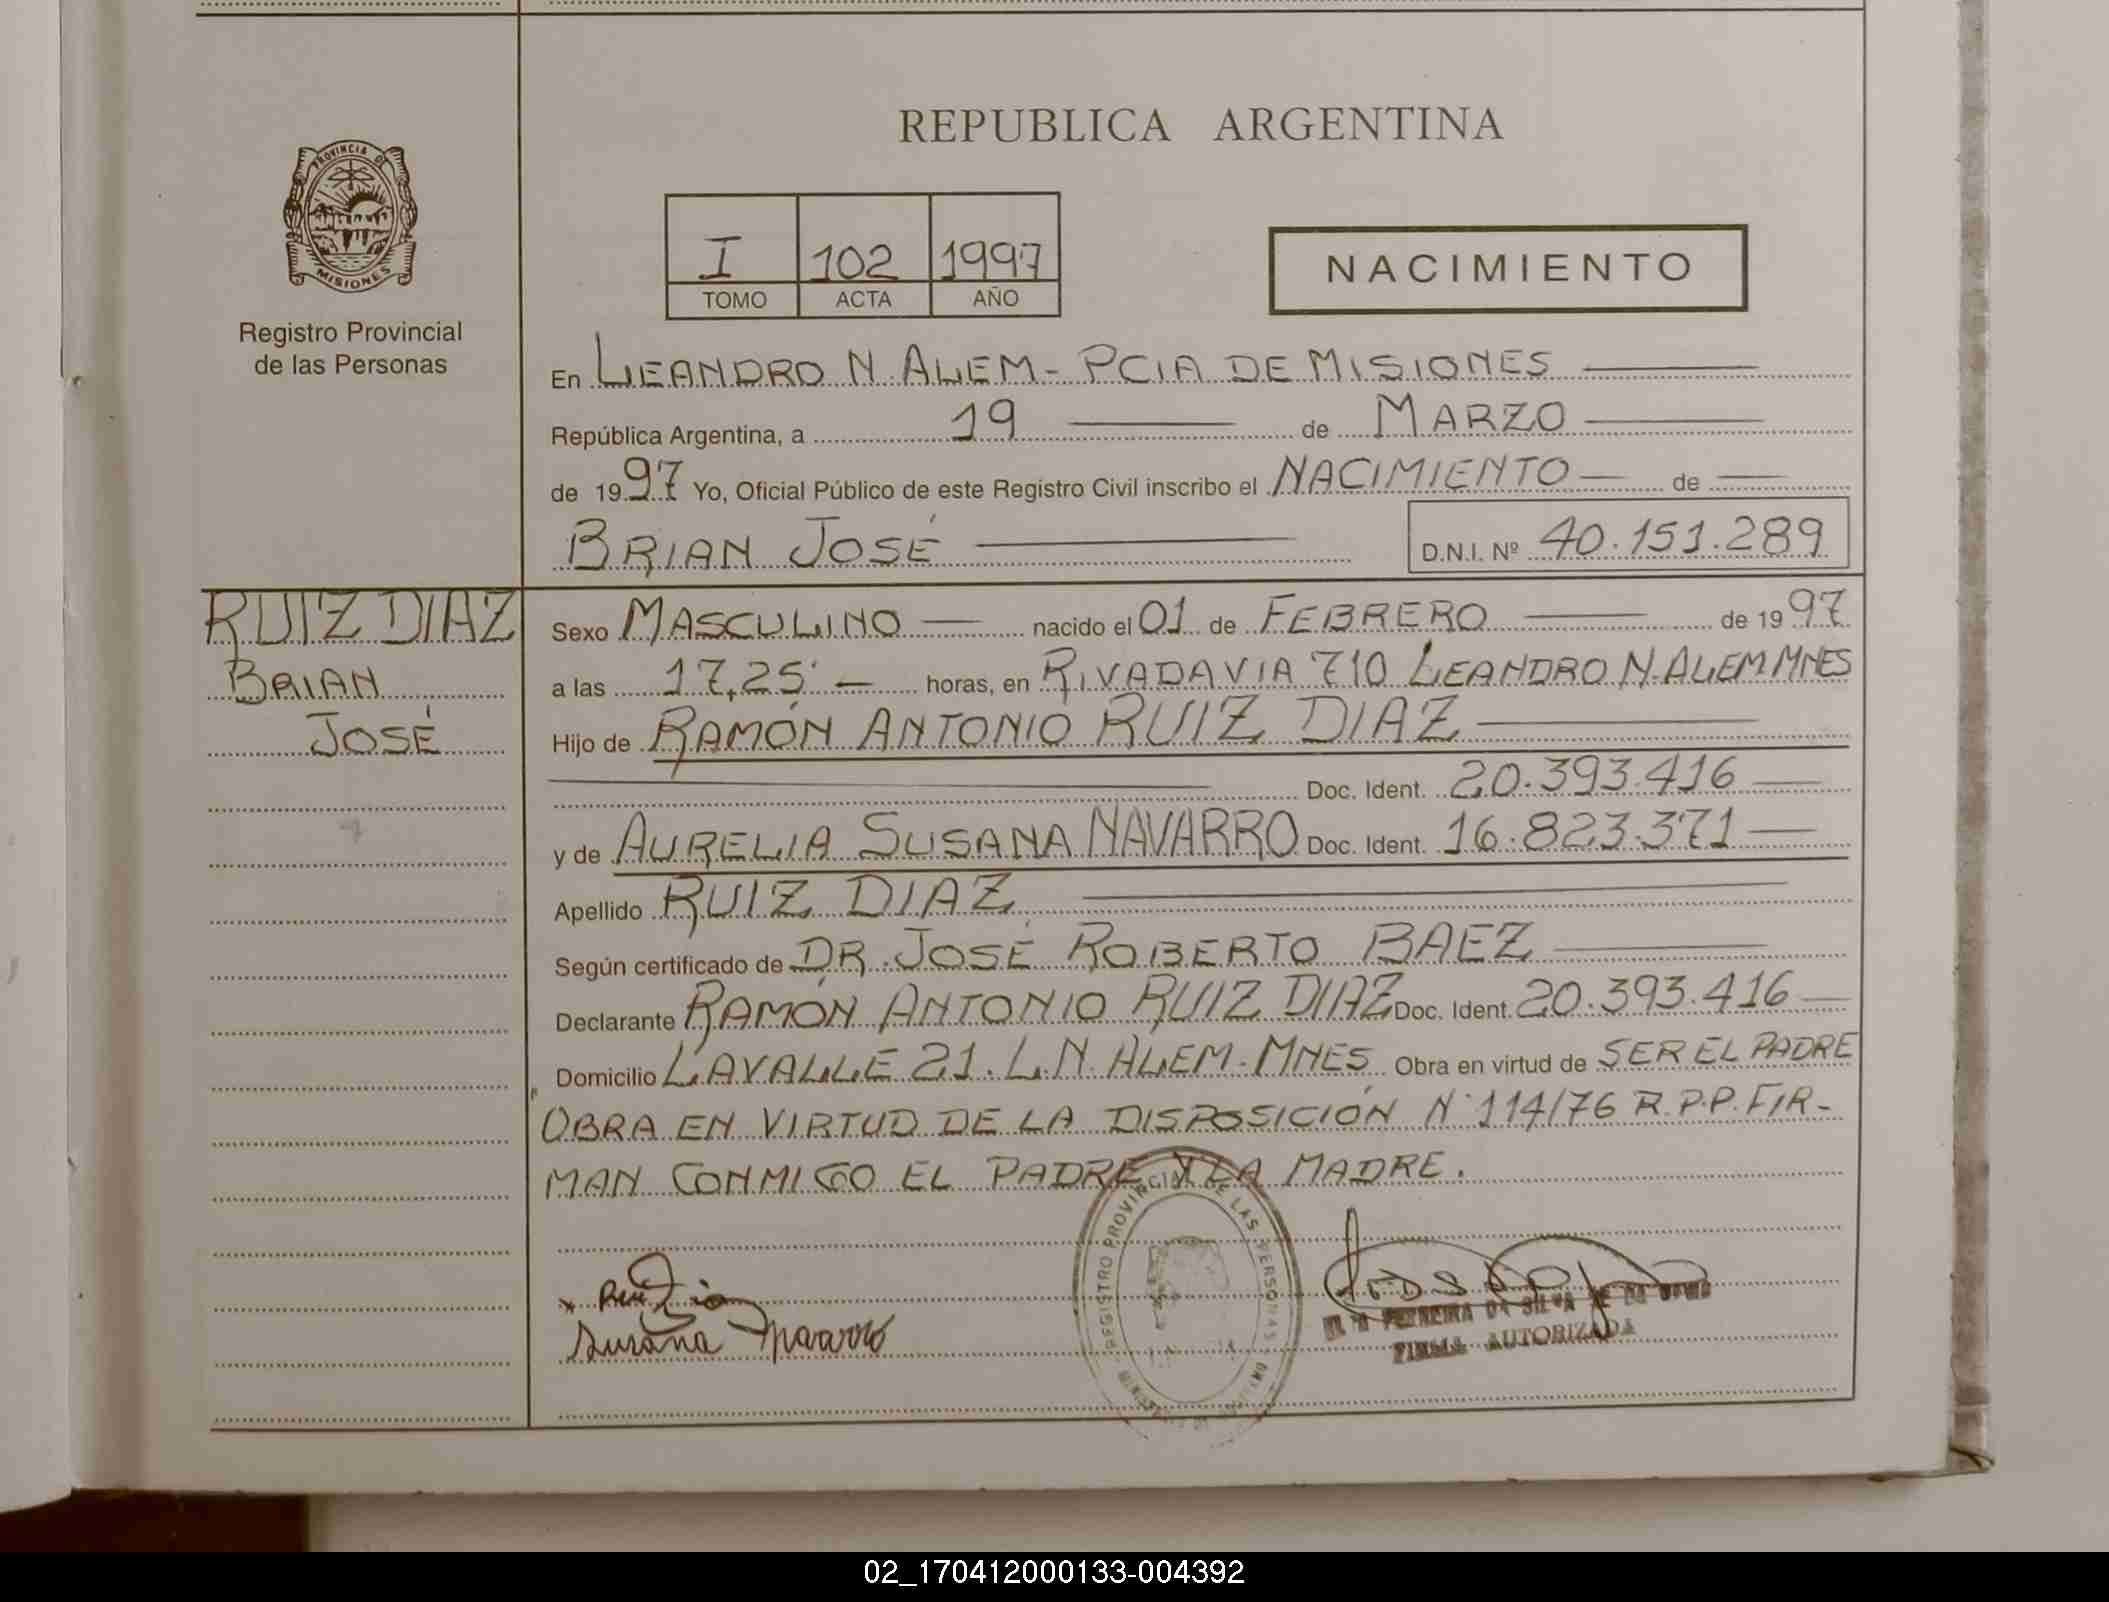 REPUBLICA ARGENTINA
PROVINCIA DE
MISIONES
Registro Provincial
de las Personas
I 102 1997
TOMO ACTA AÑO
NACIMIENTO
En LEANDRO N. ALEM - PCIA DE MISIONES
República Argentina, a 19 de MARZO
de 1997 Yo, Oficial Público de este Registro Civil inscribo el NACIMIENTO de
BRIAN JOSÉ D.N.I. Nº 40.151.289
RUIZ DIAZ
BRIAN
JOSÉ
Sexo MASCULINO nacido el 01 de FEBRERO de 1997
a las 17,25' horas, en RIVADAVIA 710 LEANDRO N. ALEM MNES
Hijo de RAMÓN ANTONIO RUIZ DIAZ
Doc. Ident. 20.393.416
y de AURELIA SUSANA NAVARRO Doc. Ident. 16.823.371
Apellido RUIZ DIAZ
Según certificado de DR. JOSÉ ROBERTO BAEZ
Declarante RAMÓN ANTONIO RUIZ DIAZ Doc. Ident. 20.393.416
Domicilio LAVALLE 21. L.N. ALEM - MNES Obra en virtud de SER EL PADRE
OBRA EN VIRTUD DE LA DISPOSICIÓN N° 114/76 R.P.P. FIR-
MAN CONMIGO EL PADRE Y LA MADRE.
REGISTRO PROVINCIAL DE LAS PERSONAS
Susana Navarro
FERREIRA DA SILVA DE
FIRMA AUTORIZADA
02_170412000133-004392